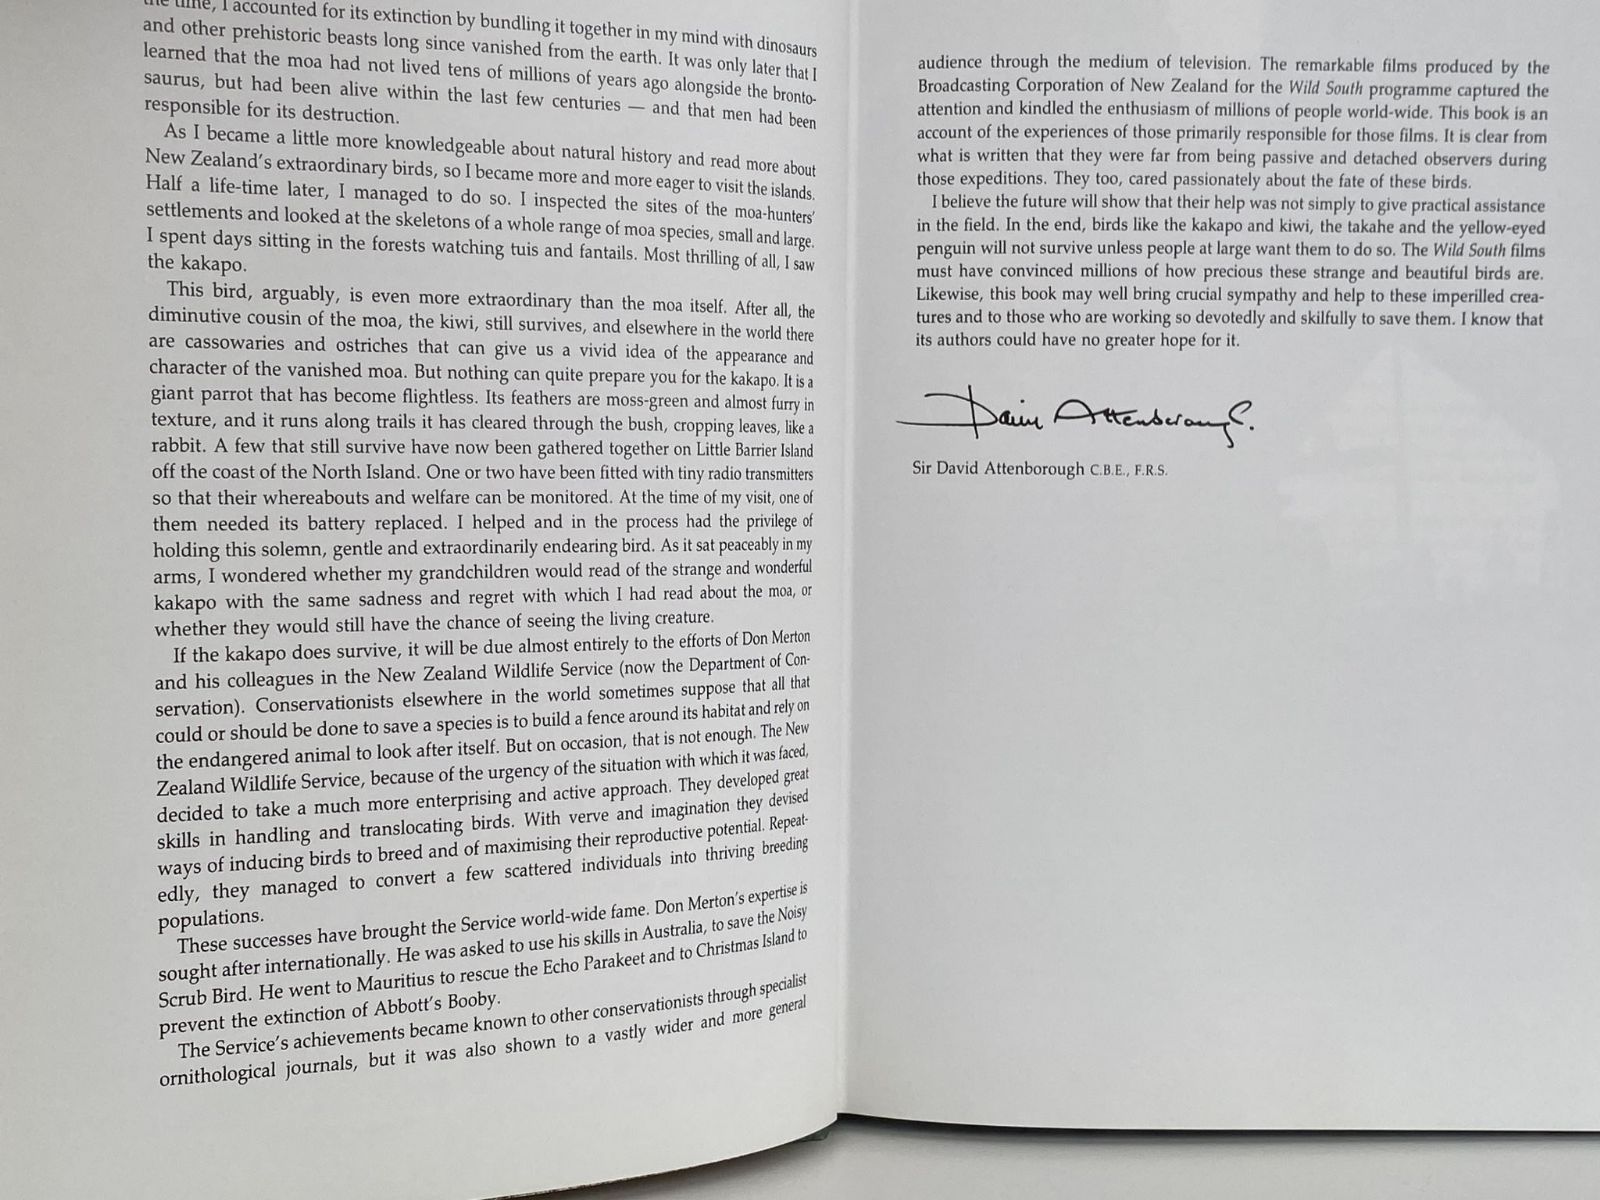 the time, I accounted for its extinction by bundling it together in my mind with dinosaurs
and other prehistoric beasts long since vanished from the earth. It was only later that I
learned that the moa had not lived tens of millions of years ago alongside the bronto-
saurus, but had been alive within the last few centuries — and that men had been
responsible for its destruction.
As I became a little more knowledgeable about natural history and read more about
New Zealand's extraordinary birds, so I became more and more eager to visit the islands.
Half a life-time later, I managed to do so. I inspected the sites of the moa-hunters'
settlements and looked at the skeletons of a whole range of moa species, small and large.
I spent days sitting in the forests watching tuis and fantails. Most thrilling of all, I saw
the kakapo.
This bird, arguably, is even more extraordinary than the moa itself. After all, the
diminutive cousin of the moa, the kiwi, still survives, and elsewhere in the world there
are cassowaries and ostriches that can give us a vivid idea of the appearance and
character of the vanished moa. But nothing can quite prepare you for the kakapo. It is a
giant parrot that has become flightless. Its feathers are moss-green and almost furry in
texture, and it runs along trails it has cleared through the bush, cropping leaves, like a
rabbit. A few that still survive have now been gathered together on Little Barrier Island
off the coast of the North Island. One or two have been fitted with tiny radio transmitters
so that their whereabouts and welfare can be monitored. At the time of my visit, one of
them needed its battery replaced. I helped and in the process had the privilege of
holding this solemn, gentle and extraordinarily endearing bird. As it sat peaceably in my
arms, I wondered whether my grandchildren would read of the strange and wonderful
kakapo with the same sadness and regret with which I had read about the moa, or
whether they would still have the chance of seeing the living creature.
If the kakapo does survive, it will be due almost entirely to the efforts of Don Merton
and his colleagues in the New Zealand Wildlife Service (now the Department of Con-
servation). Conservationists elsewhere in the world sometimes suppose that all that
could or should be done to save a species is to build a fence around its habitat and rely on
the endangered animal to look after itself. But on occasion, that is not enough. The New
Zealand Wildlife Service, because of the urgency of the situation with which it was faced,
decided to take a much more enterprising and active approach. They developed great
skills in handling and translocating birds. With verve and imagination they devised
ways of inducing birds to breed and of maximising their reproductive potential. Repeat-
edly, they managed to convert a few scattered individuals into thriving breeding
populations.
These successes have brought the Service world-wide fame. Don Merton's expertise is
sought after internationally. He was asked to use his skills in Australia, to save the Noisy
Scrub Bird. He went to Mauritius to rescue the Echo Parakeet and to Christmas Island to
prevent the extinction of Abbott's Booby.
The Service's achievements became known to other conservationists through specialist
ornithological journals, but it was also shown to a vastly wider and more general
audience through the medium of television. The remarkable films produced by the
Broadcasting Corporation of New Zealand for the Wild South programme captured the
attention and kindled the enthusiasm of millions of people world-wide. This book is an
account of the experiences of those primarily responsible for those films. It is clear from
what is written that they were far from being passive and detached observers during
those expeditions. They too, cared passionately about the fate of these birds.
I believe the future will show that their help was not simply to give practical assistance
in the field. In the end, birds like the kakapo and kiwi, the takahe and the yellow-eyed
penguin will not survive unless people at large want them to do so. The Wild South films
must have convinced millions of how precious these strange and beautiful birds are.
Likewise, this book may well bring crucial sympathy and help to these imperilled crea-
tures and to those who are working so devotedly and skilfully to save them. I know that
its authors could have no greater hope for it.
David Attenborough.
Sir David Attenborough C.B.E., F.R.S.